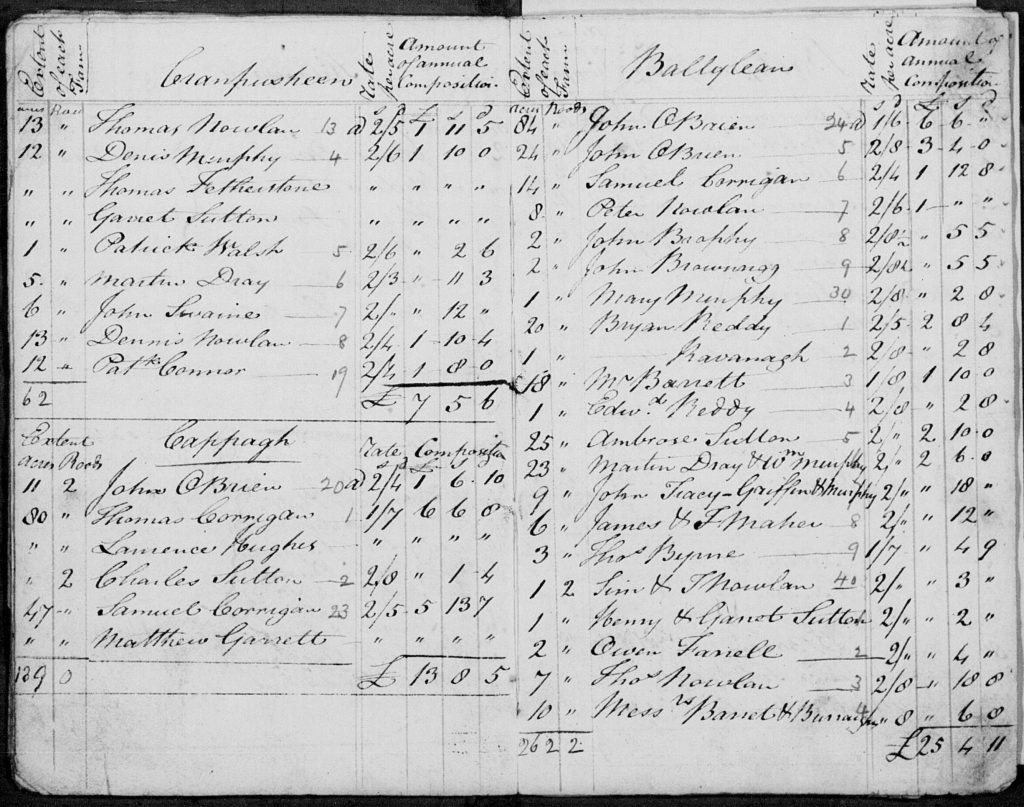 Extent of each Farm Cranpusheen Rate per acre Amount of annual Composition
acres Roods s d £ s d
13 " Thomas Nowlan 13 a 2/5 1 11 5
12 " Denis Murphy 4 2/6 1 10 0
" " Thomas Fetherstone " " " "
" " Garret Sutton " " " "
1 " Patrick Walsh 5 2/6 " 2 6
5 " Martin Dray 6 2/3 " 11 3
6 " John Swaine 7 2/" " 12 "
13 " Dennis Nowlan 8 2/4 1 10 4
12 " Patk Connor 19 2/4 1 8 0
62 £ 7 5 6
Extent Cappagh Rate Composition
acres Roods s d £ s d
11 2 John O'Brien 20 a 2/4 1 6 10
80 " Thomas Corrigan 1 1/7 6 6 8
" " Laurence Hughes " " " "
" 2 Charles Sutton 2 2/8 " 1 4
47 " Samuel Corrigan 23 2/5 5 13 7
" " Matthew Garrett " " " "
139 0 £ 13 8 5
Extent of each Farm Ballylean Rate per acre Amount of Annual Composition
acres Roods s d £ s d
84 " John O'Brien 24 a 1/6 6 6 "
24 " John O'Brien 5 2/8 3 4 0
14 " Samuel Corrigan 6 2/4 1 12 8
8 " Peter Nowlan 7 2/6 1 " "
2 " John Brophy 8 2/8½ " 5 5
2 " John Brownrigg 9 2/8½ " 5 5
1 " Mary Murphy 30 2/8 " 2 8
20 " Bryan Reddy 1 2/5 2 8 4
1 " Kavanagh 2 2/8 " 2 8
18 " Mr Barrett 3 1/8 1 10 0
1 " Edwd Reddy 4 2/8 " 2 8
25 " Ambrose Sutton 5 2/" 2 10 0
23 " Martin Dray & Wm Murphy 2/" 2 6 0
9 " John Tracy - Griffin & Murphy 2/" " 18 "
6 " James & T Maher 8 2/" " 12 "
3 " Thos Byrne 9 1/7 " 4 9
1 2 Sim & T Nowlan 40 2/" " 3 "
1 " Henry & Garrot Sutton 2/" " 2 "
2 " Owen Farrell 2 2/" " 4 "
7 " Thos Nowlan 3 2/8 " 18 8
10 " Messrs Barret & 4 " 8 " 6 8
262 2 £25 4 11